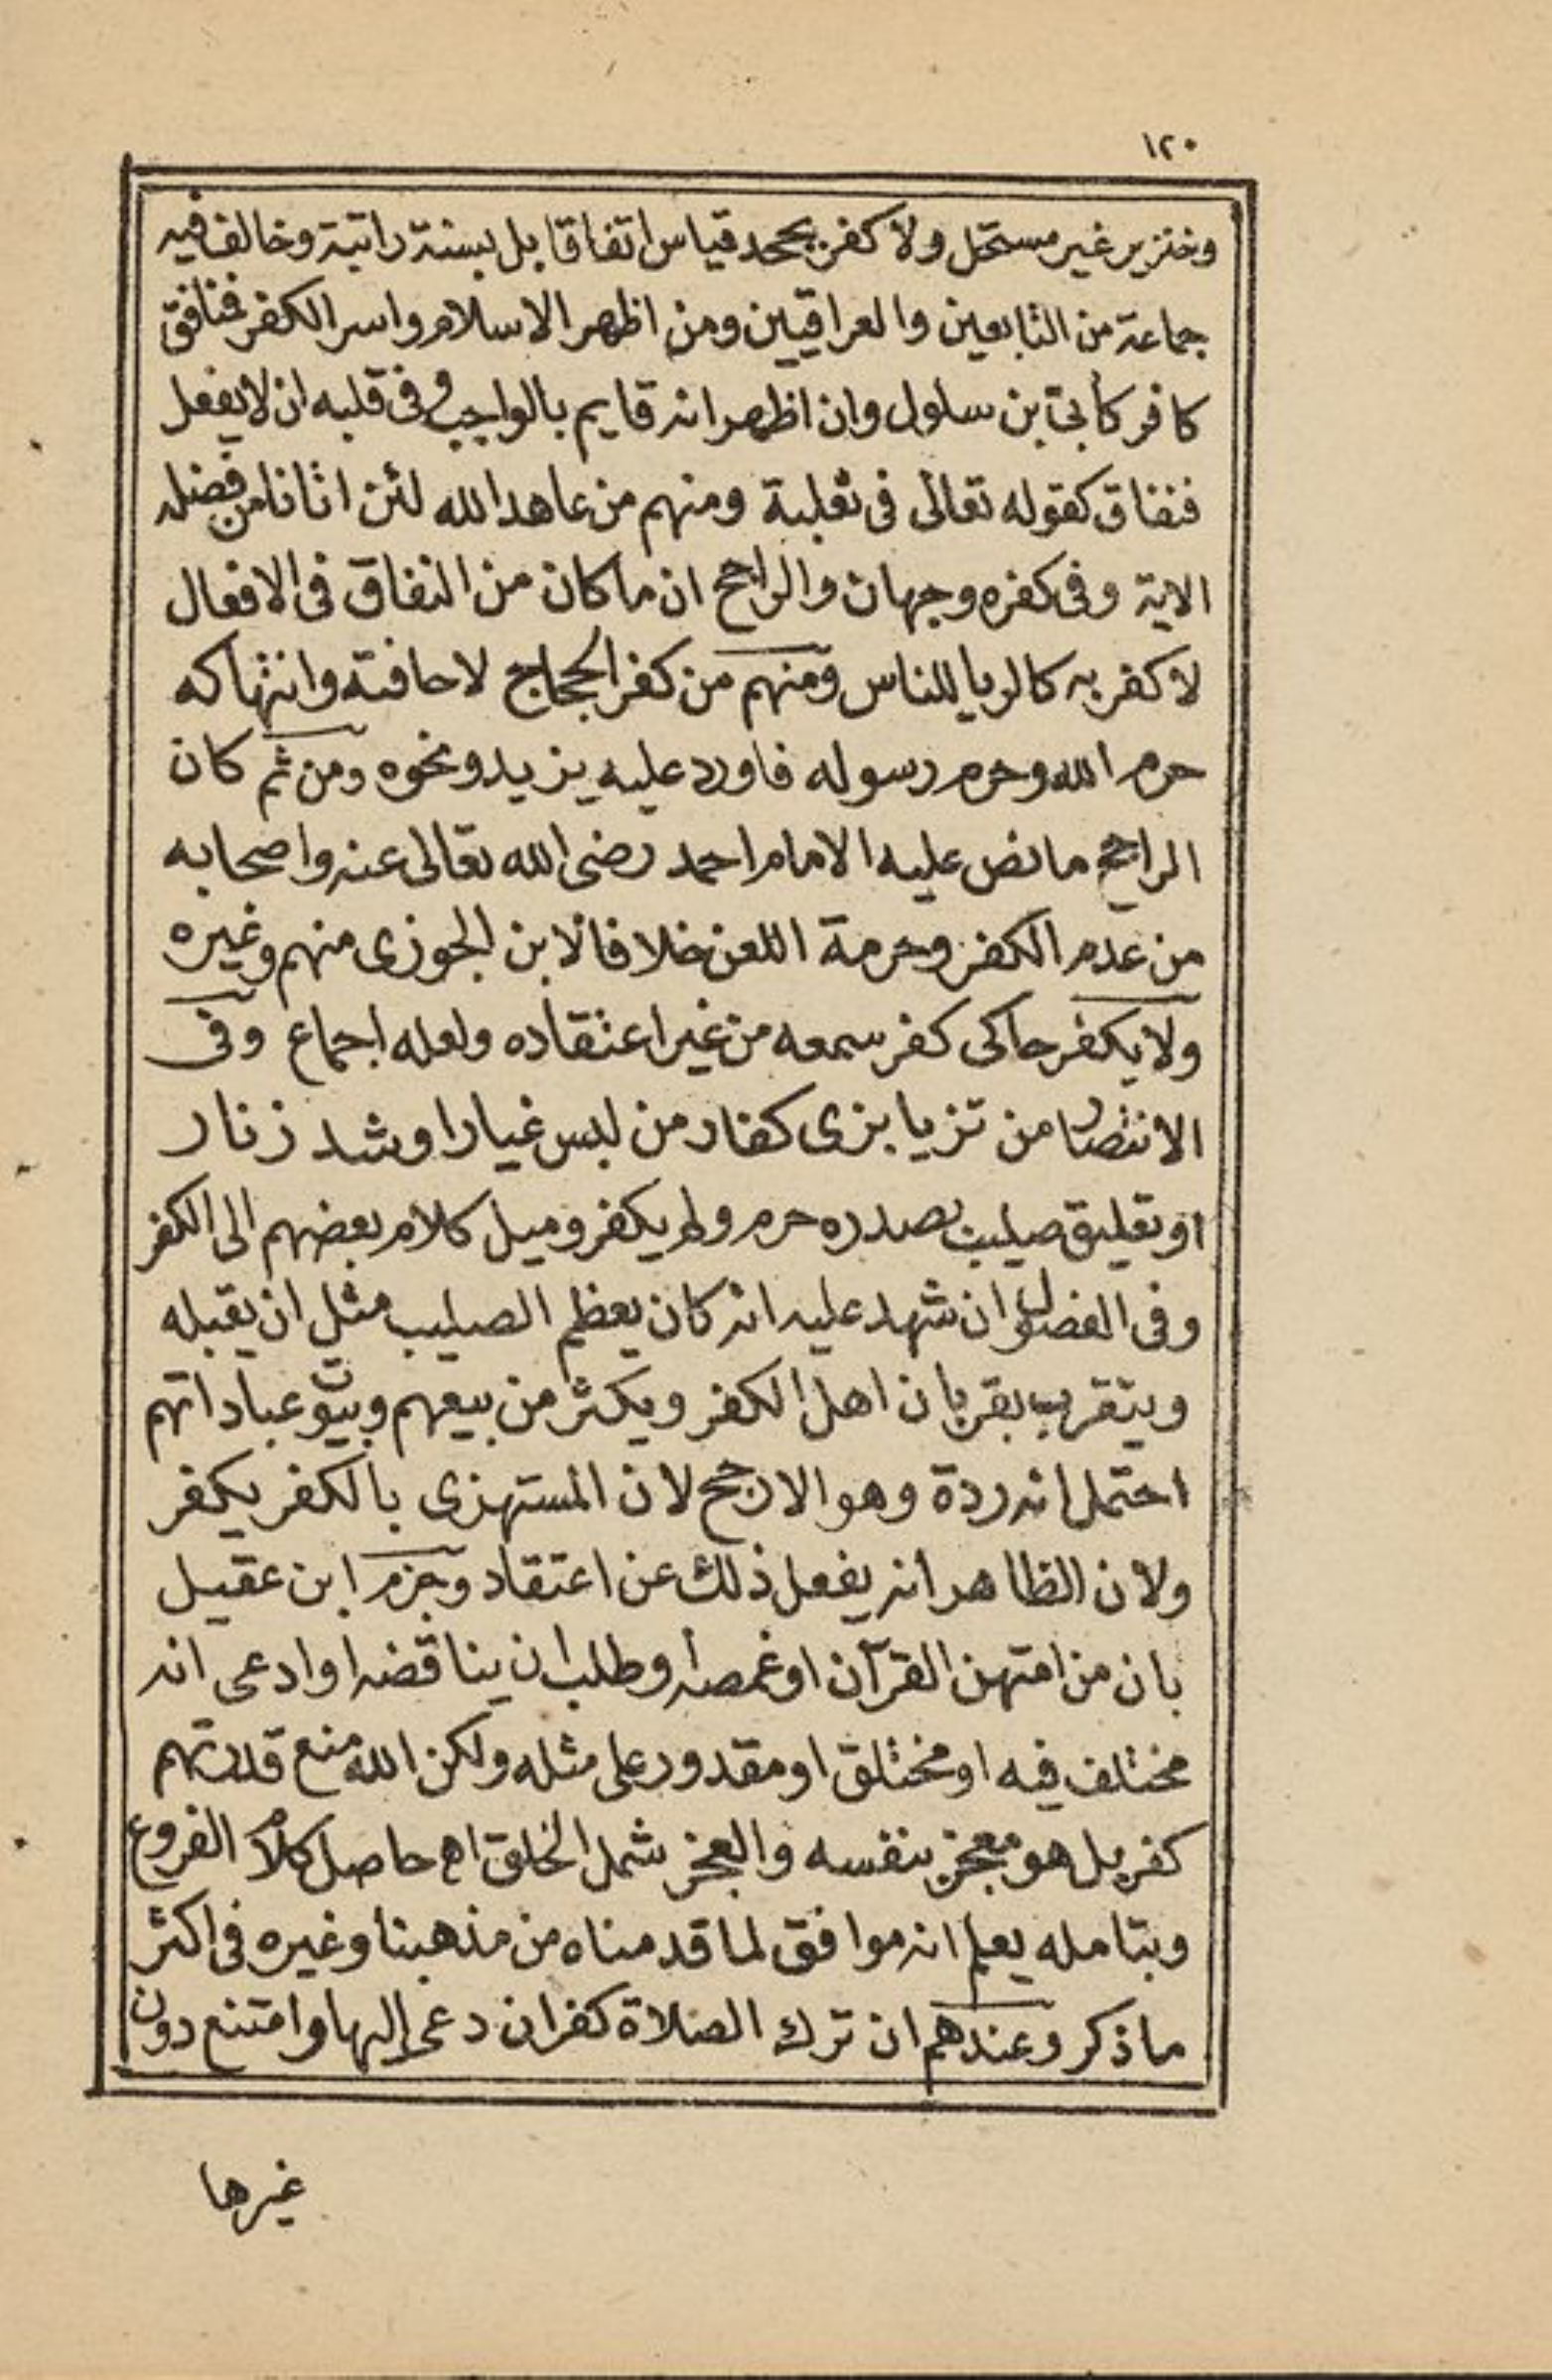 ١٢٠
وخنزير غير مستحل ولا كفر بجحد قياس اتفاقا بل بسنة راتبة وخالف فيه
جماعة من التابعين والعراقيين ومن اظهر الاسلام واسر الكفر فمنافق
كافر كأبيّ بن سلول وان اظهر انه قايم بالواجب وفى قلبه ان لا يفعل
فنفاق كقوله تعالى فى ثعلبة ومنهم من عاهد الله لئن اتانا من فضله
الاية وفى كفره وجهان والراجح ان ما كان من النفاق فى الافعال
لا كفر به كالريا للناس ومنهم من كفر الحجاج لاخافته وانتهاكه
حرم الله وحرم رسوله فاورد عليه يزيد ونحوه ومن ثم كان
الراجح ما نص عليه الامام احمد رضى الله تعالى عنه واصحابه
من عدم الكفر وحرمة اللعن خلافا لابن الجوزى منهم وغيره
ولا يكفر حاكى كفر سمعه من غير اعتقاده ولعله اجماع وفى
الانتصار من تزيا بزى كفار من لبس غيار او شد زنار
او تعليق صليب بصدره حرم ولم يكفر وميل كلام بعضهم الى الكفر
وفى الفصول ان شهد عليه انه كان يعظم الصليب مثل ان يقبله
ويتقرب بقربان اهل الكفر ويكثر من بيعهم وبيوت عباداتهم
احتمل انه ردة وهو الارجح لان المستهزى بالكفر يكفر
ولان الظاهر انه يفعل ذلك عن اعتقاد وجزم ابن عقيل
بان من امتهن القرآن او غمصه او طلب ان يناقضه او ادعى انه
مختلف فيه او مختلق او مقدور على مثله ولكن الله منع قدرتهم
كفر بل هو معجز بنفسه والعجز شمل الخلق اه حاصل كلام الفروع
وبتامله يعلم انه موافق لما قدمناه من مذهبنا وغيره فى اكثر
ما ذكر وعندهم ان ترك الصلاة كفر ان دعى إليها وامتنع دون
غيرها